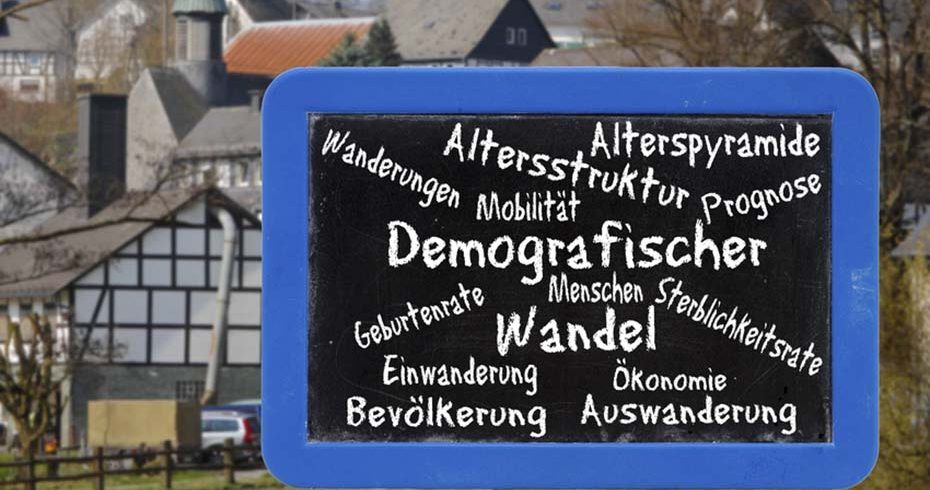 Wanderungen
Altersstruktur
Alterspyramide
Mobilität
Prognose
Demografischer
Geburtenrate
Menschen
Sterblichkeitsrate
Wandel
Einwanderung
Ökonomie
Bevölkerung
Auswanderung